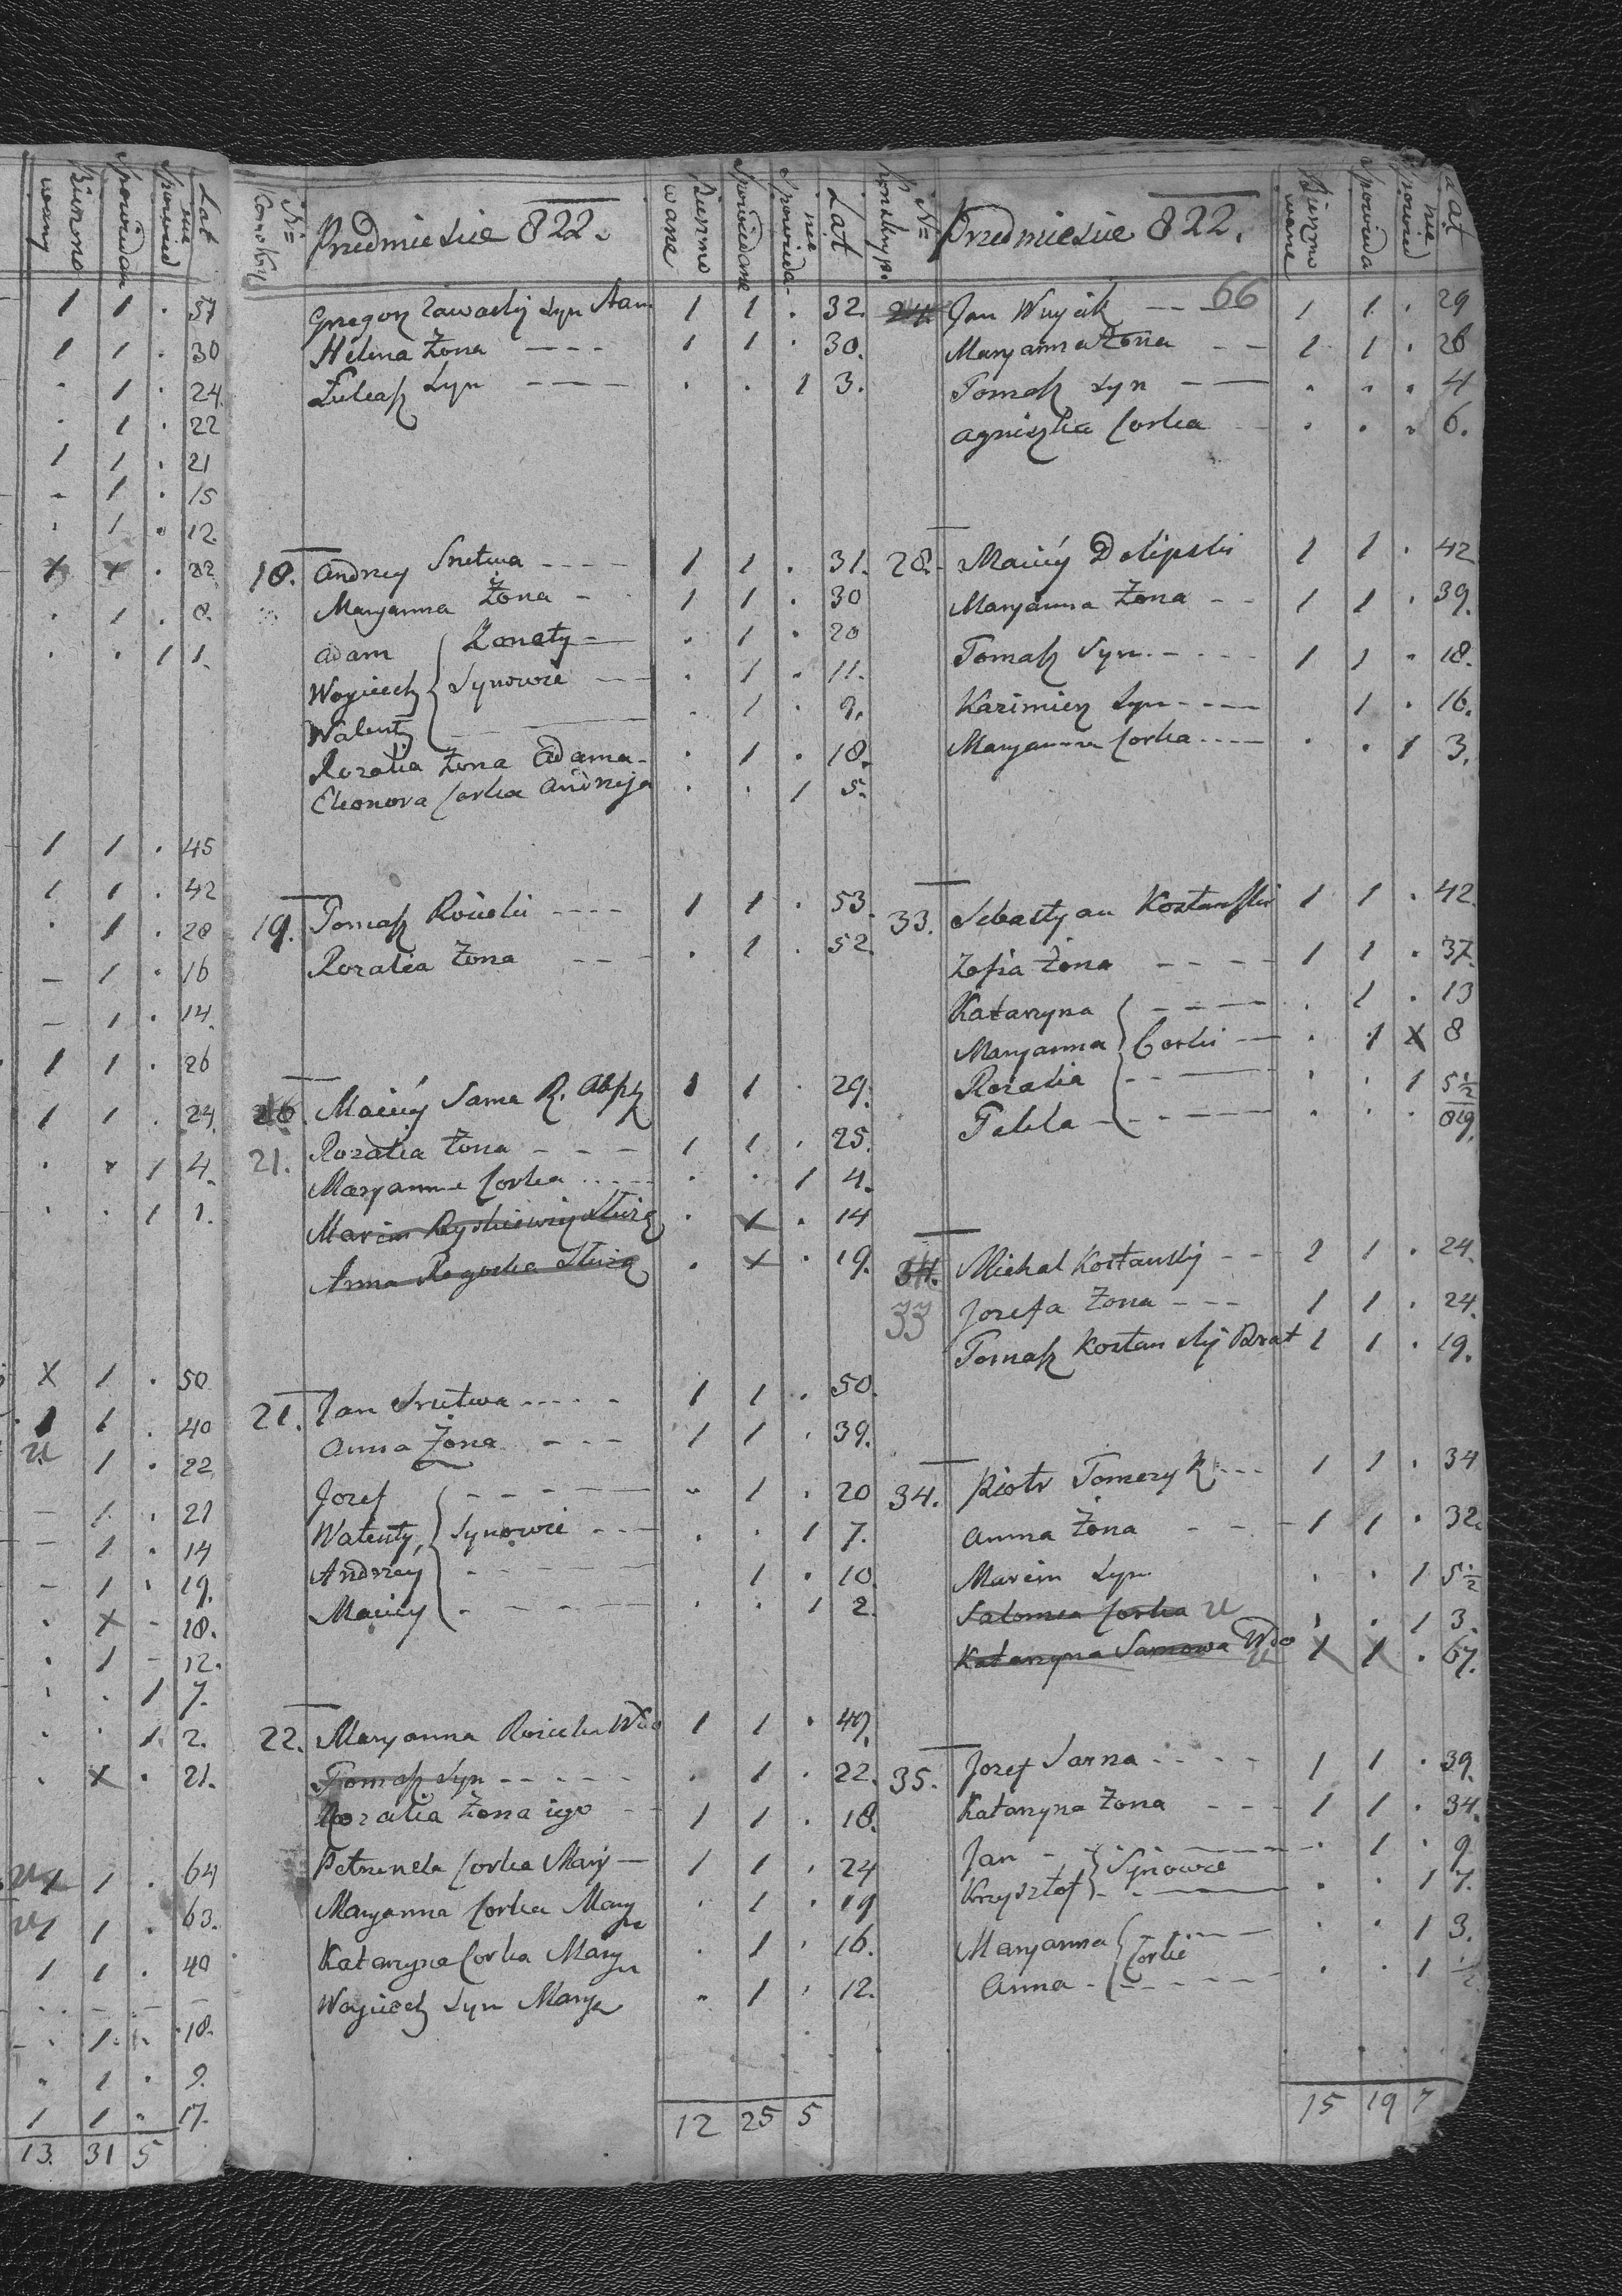 Lat
nie
Spowied
Spowiedan
Bierzmo
wany
1 1 . 57
1 1 . 30
. 1 . 24.
. 1 . 22
1 1 . 21
- 1 . 15
. 1 . 12.
X x . 22
. 1 . 8.
. . 1 1.
1 1 . 45
1 1 . 42
. 1 . 20
- 1 . 16
- 1 . 14.
1 1 . 26
1 1 . 24.
. . 1 4.
. . 1 1.
X 1 . 50
1 1 . 40
1 . 22
- 1 . 21
- 1 . 14
- 1 . 19.
. X - 18.
. 1 - 12.
. . 1 7.
. . 1 2.
. X . 21.
1 . 64
1 . 63.
1 1 . 40
- 1 . 18.
. 1 . 9.
1 1 . 17.
13. 31 5
Nr=
Przedmiescie 822.
Bierzmo
wane
Spowiedane
nie
Spowieda-
Lat
Grzegorz Zawadzkj Syn Stan 1 1 . 32.
Helena Żona ---- 1 1 . 30.
Łukasz Syn ---- . . 1 3.
18. Andrzey Snetwa ---- 1 1 . 31.
Maryanna Żona - 1 1 . 30
Adam Żonaty - . 1 . 20
Woyciech Synowie --- . 1 . 11.
Walenty . 1 . 9.
Rozalia Żona Adama - . 1 . 18.
Eleonora Corka Andrzeja . . 1 5.
19. Tomasz Rosicki ---- 1 1 . 53.
Rozalia Żona --- . 1 . 52.
Maciey Sarna 1 1 . 29.
21. Rozalia Żona --- 1 1 . 25.
Maryanna Corka ..... . . 1 4.
Marcin Ryskiewicz Służą . X . 14
Anna Rogocka Służą . X . 19.
21. Jan Snetwa ..... 1 1 . 50.
Anna Żona --- 1 1 . 39.
Jozef ------ „ 1 . 20
Walenty, Synowie --- . . 1 7.
Andrzey ------ 1 . 10.
Maciey ------ . . 1 2.
22. Maryanna Rosicka Wdo 1 1 . 49.
Tomasz Syn ------ . 1 . 22.
Rozalia Żona iego -- 1 1 . 18.
Petronela Corka Mary - 1 1 . 24
Maryanna Corka Mary . 1 . 19
Katarzyna Corka Mary . 1 . 16.
Woyciech Syn Mary „ 1 . 12.
12 25 5
Nr=
Konskryp.
Przedmiescie 822.
Bierzmo
wane
Spowieda
nie
Spowied
Lat
66
Jan Wuycik --- 1 1 . 29
Maryanna Żona -- 1 1 . 26
Tomasz Syn --- . . . 4
Agniszka Corka -- . . . 6.
28. Maciey Dolipski 1 1 . 42
Maryanna Żona -- 1 1 . 39.
Tomasz Syn. ---- 1 1 . 18.
Kazimierz Syn ---- 1 . 16.
Maryanna Corka ---- . . 1 3.
33. Sebastyan Kostanski 1 1 . 42.
Zofia Żona ---- 1 1 . 37.
Katarzyna ---- . 1 . 13
Maryanna Corki -- . 1 X 8
Rozalia ---- . . 1 5½
Tekla ------ . . .
34. Michał Kostanskj -- 1 1 . 24.
33 Jozefa Żona --- 1 1 . 24.
Tomasz Kostanskj Brat 1 1 . 19.
34. Piotr Tomczyk --- 1 1 . 34
Anna Żona --- 1 1 . 32.
Marcin Syn . . 1 5½
Salomea Corka . . 1 3.
Katarzyna Sarnowa Wdo X X . 67.
35. Jozef Sarna ..... 1 1 . 39.
Katarzyna Żona --- 1 1 . 34.
Jan - - Synowie . 1 . 9
Krzysztof - - . . 1 7.
Maryanna . . 1 3.
Anna - Corki . . 1 ½
15 19 7